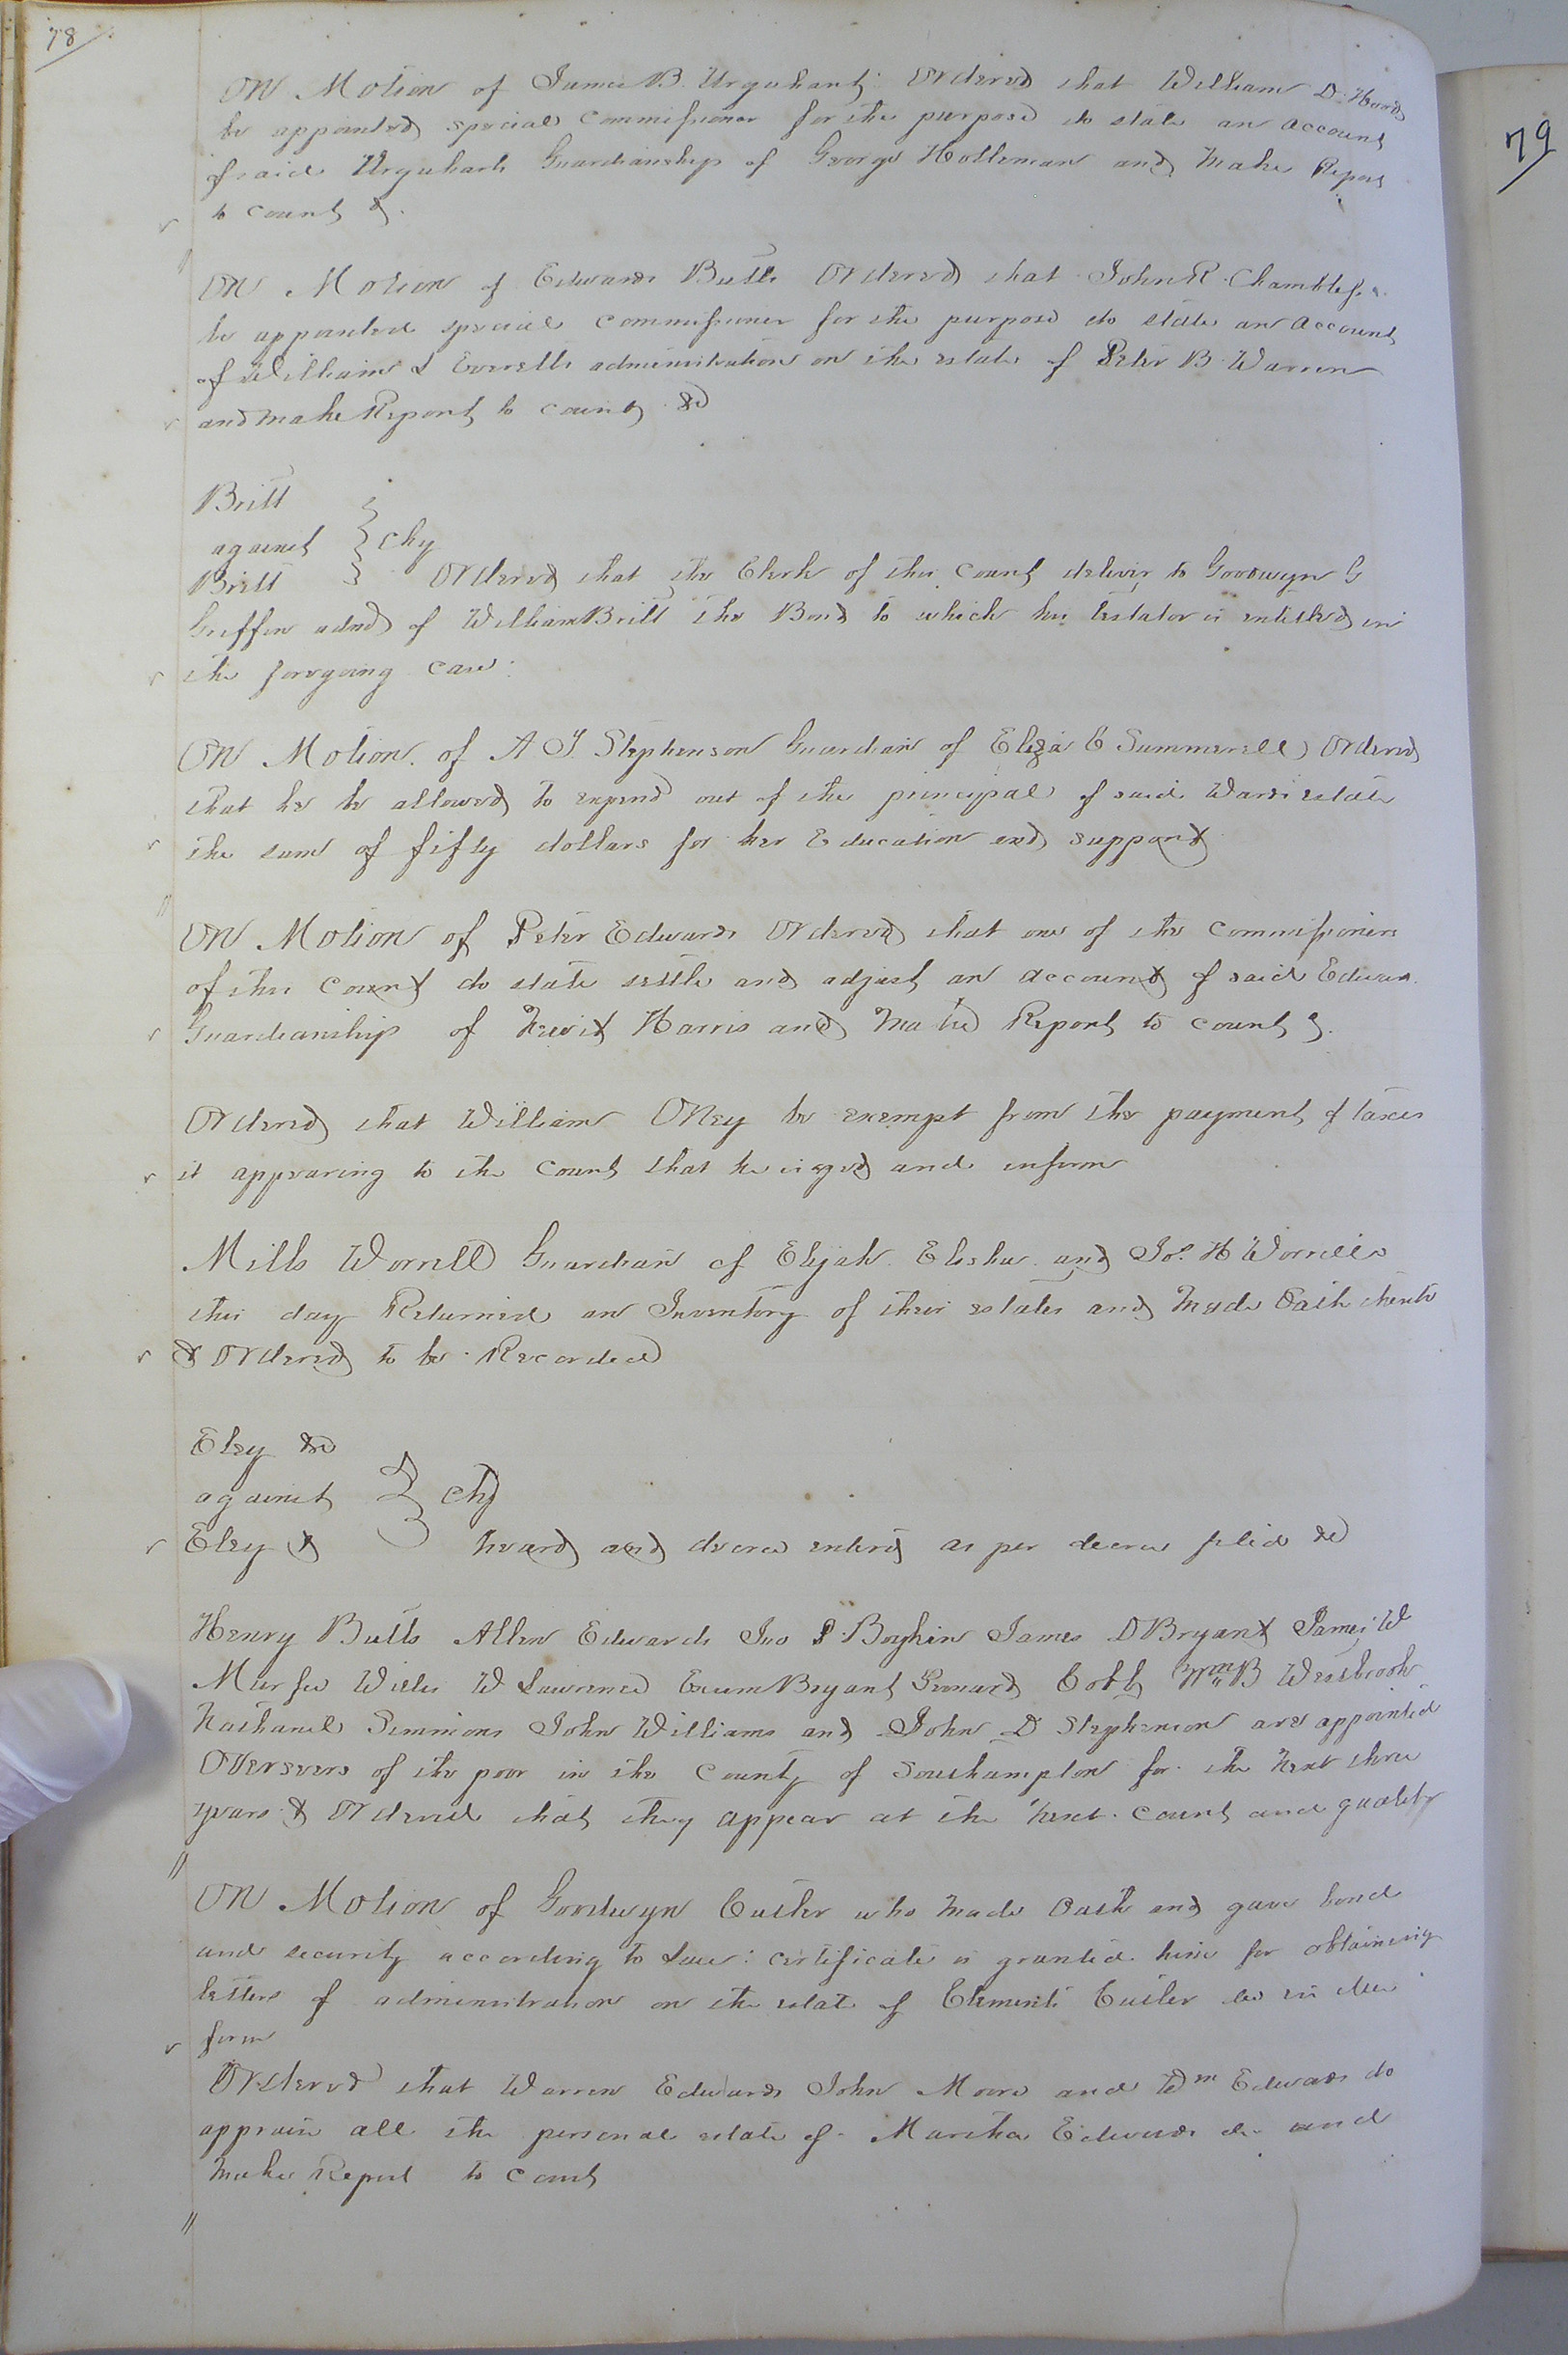 78
On Motion of James B. Urquhart: Ordered that William D. Hood
be appointed special commissioner for the purpose to state an account
of said Urquharts Guardianship of George Holleman and Make Report
to court &.
On Motion of Edwards Butts Ordered that John R. Chambless
be appointed special commissioner for the purpose to state an account
of William L Everetts administration on the estate of Peter B. Warren
and make Report to court &c
Britt
against } Chy
Britt Ordered that the Clerk of this Court deliver to Goodwyn G
Griffin admr of William Britt the Bond to which his testator is entitled in
the foregoing case:
On Motion of A J. Stephenson Guardian of Eliza E Summerell Ordered
that he be allowed to expend out of the principal of said Wards estate
the sum of fifty dollars for her Education and support
On Motion of Peter Edwards Ordered that one of the commissioners
of this court do state settle and adjust an account of said Edwards
Guardianship of Harris and Make Report to court &.
Ordered that William Oney be exempt from the payment of taxes
it appearing to the court that he is aged and infirm
Mills Worrell Guardian of Elijah Elisha and Jos. H Worrells
this day Returned an Inventory of their estates and Made Oath thereto
& Ordered to be Recorded
Eley &c
against } Chy
Eley & heard and decree entered as per decree filed &c
Henry Butts Allen Edwards Jno P. Boykin James D Bryant James W
Murfee Willis W Lawrence Exum Bryant Cobb Wm B Westbrook
Nathaniel Simmons John Williams and John D Stephenson are appointed
Overseers of the poor in the County of Southampton for the Next three
years & Ordered that they appear at the Next Court and qualify
On Motion of Goodwyn Cutler who Made Oath and gave bond
and security according to Law: certificate is granted him for obtaining
letters of administration on the estate of Clements Cutler dec in due
form
Ordered that Warren Edwards John Moore and Wm Edwards do
appraise all the personal estate of Martha Edwards dec and
Make Report to Court
79